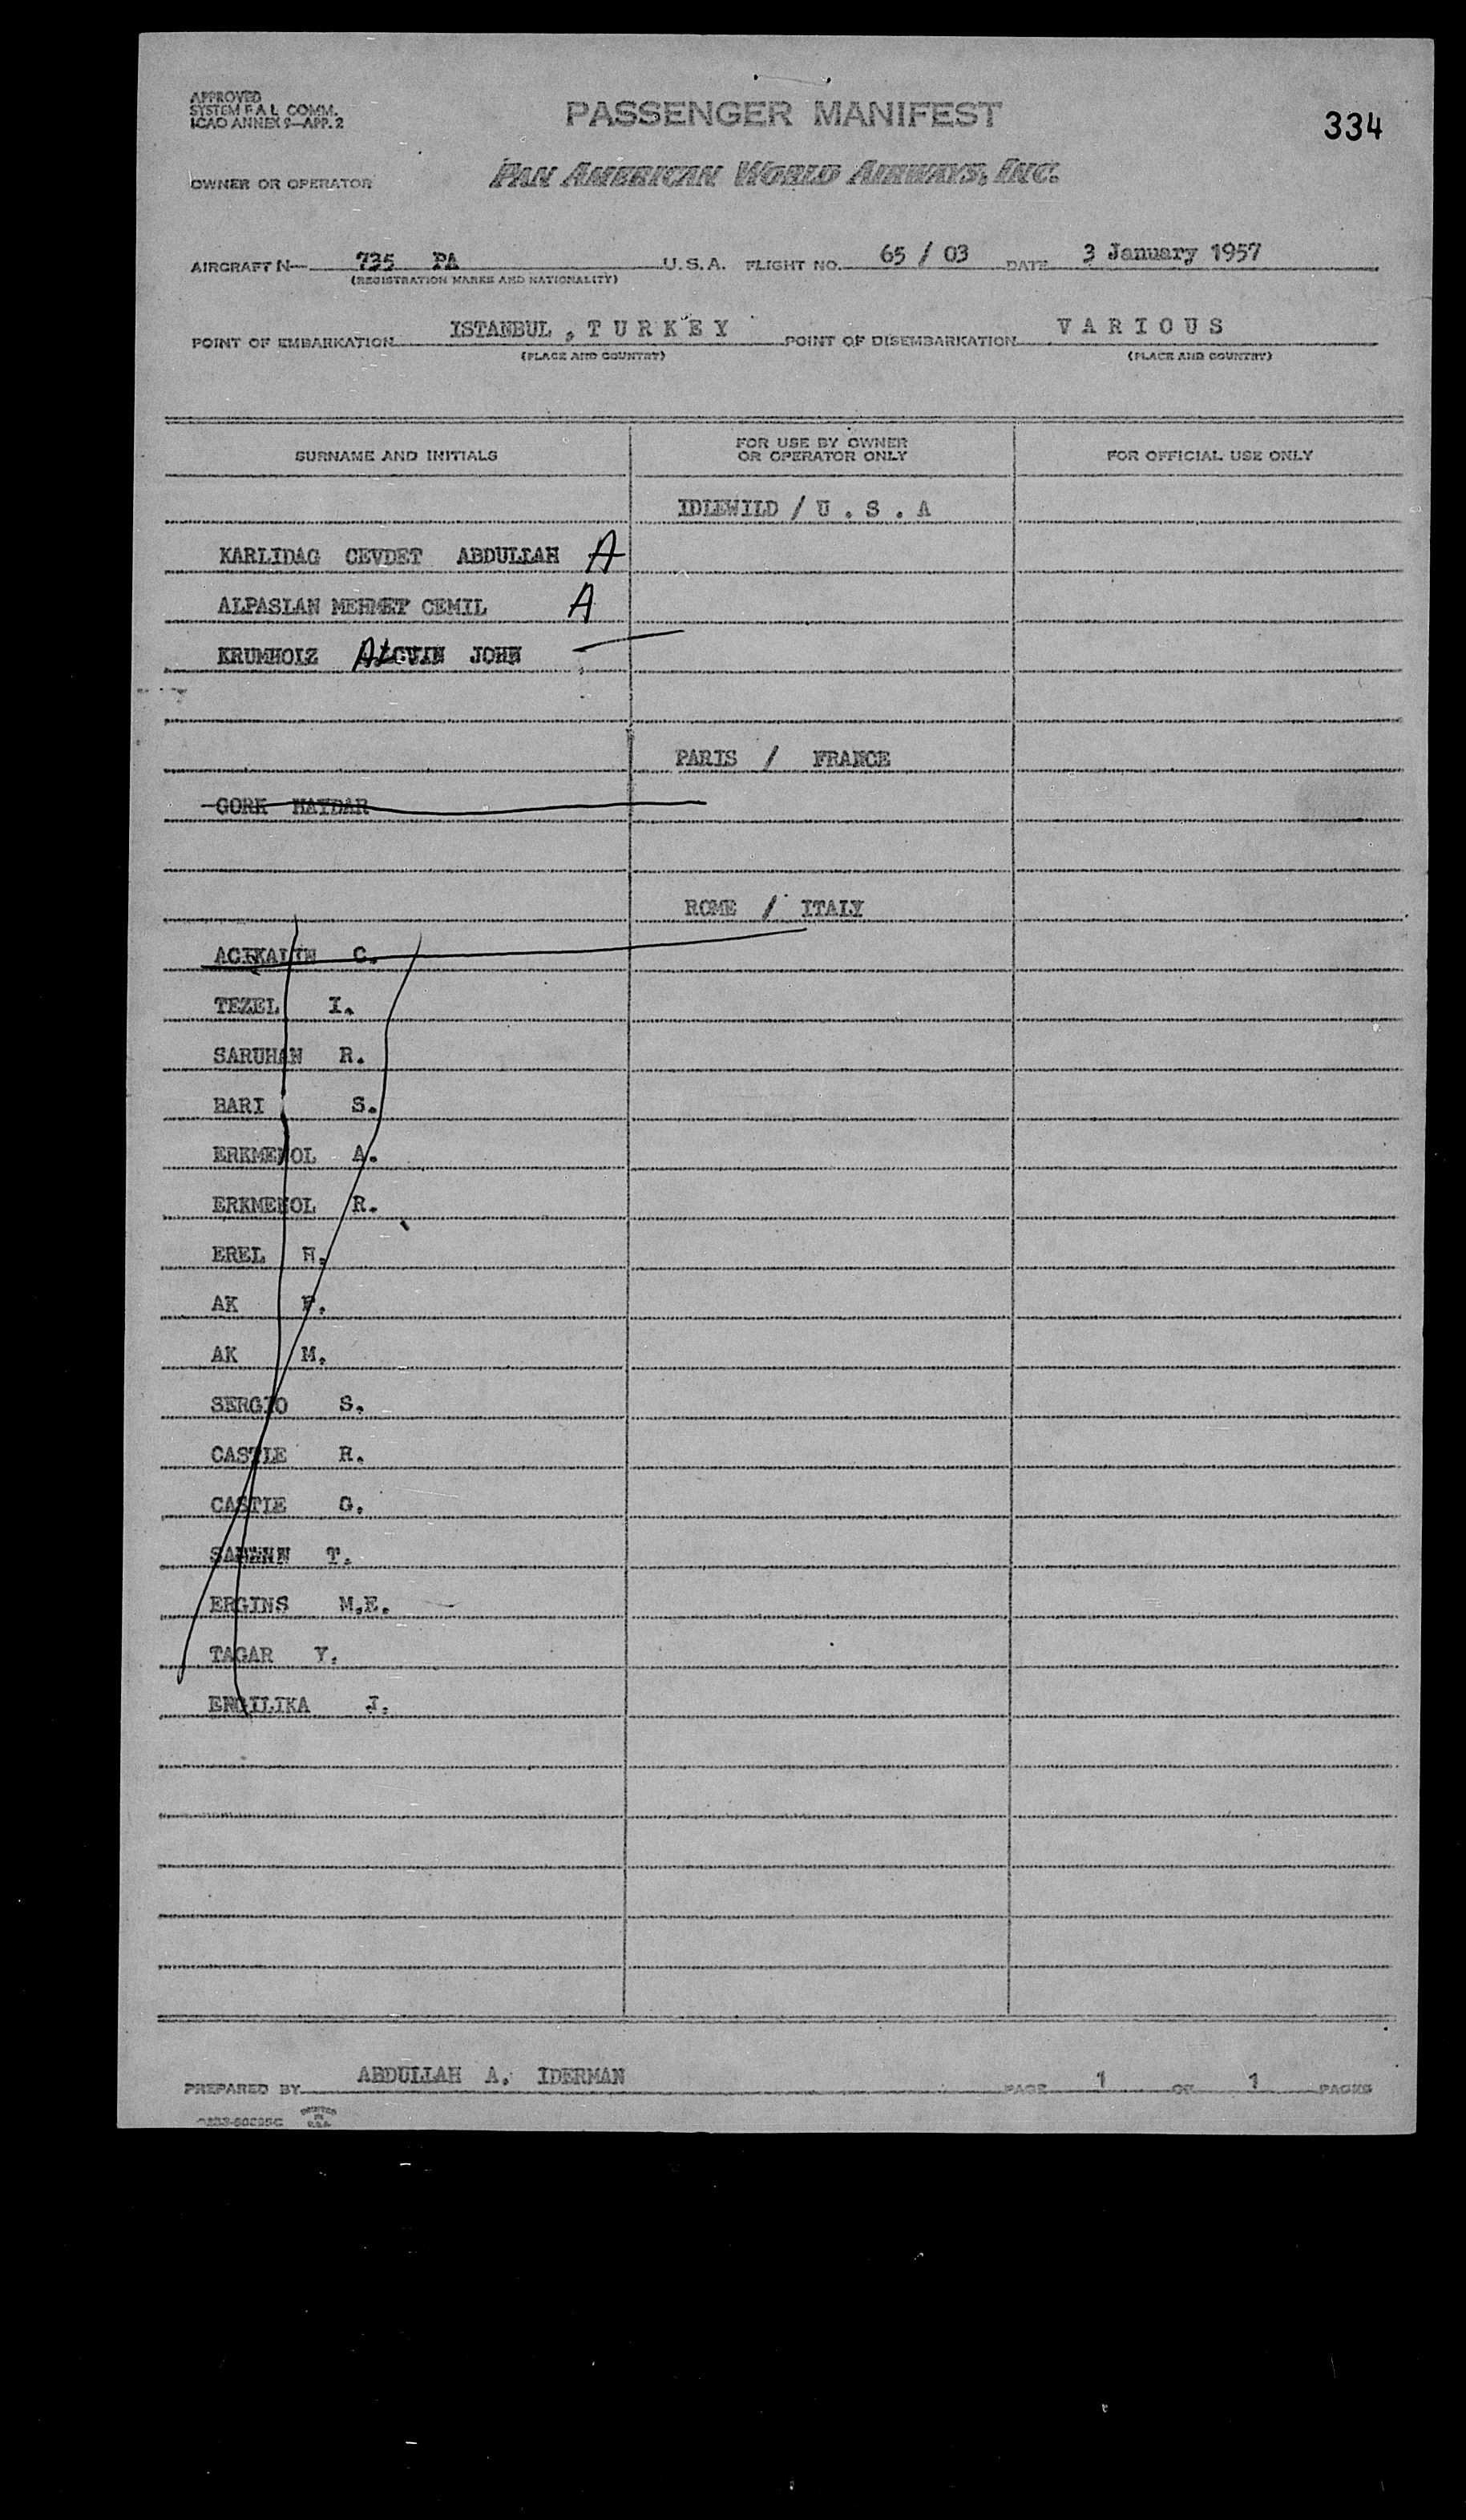 APPROVED
SYSTEM F A L COMM.
ICAO ANNEX 9—APP. 2
PASSENGER MANIFEST
334
OWNER OR OPERATOR
PAN AMERICAN WORLD AIRWAYS, INC.
AIRCRAFT N— 735 PA U. S. A. FLIGHT NO. 65 / 03 DATE 3 January 1957
(REGISTRATION MARKS AND NATIONALITY)
POINT OF EMBARKATION ISTANBUL , T U R K E Y POINT OF DISEMBARKATION V A R I O U S
(PLACE AND COUNTRY) (PLACE AND COUNTRY)
SURNAME AND INITIALS FOR USE BY OWNER OR OPERATOR ONLY FOR OFFICIAL USE ONLY
IDLEWILD / U . S . A
KARLIDAG CEVDET ABDULLAH A
ALPASLAN MEHMET CEMIL A
KRUMHOLZ ALCUIN JOHN —
PARIS / FRANCE
GORK HAYDAR
ROME / ITALY
ACIKALIN C.
TEZEL I.
SARUHAN R.
BARI S.
ERKMENOL A.
ERKMENOL R.
EREL H.
AK F.
AK M.
SERGIO S.
CASTLE R.
CASTLE G.
T.
ERGINS M.E.
TAGAR Y.
ENGILIKA J.
PREPARED BY ABDULLAH A. IDERMAN PAGE 1 OF 1 PAGES
PRINTED IN U.S.A.